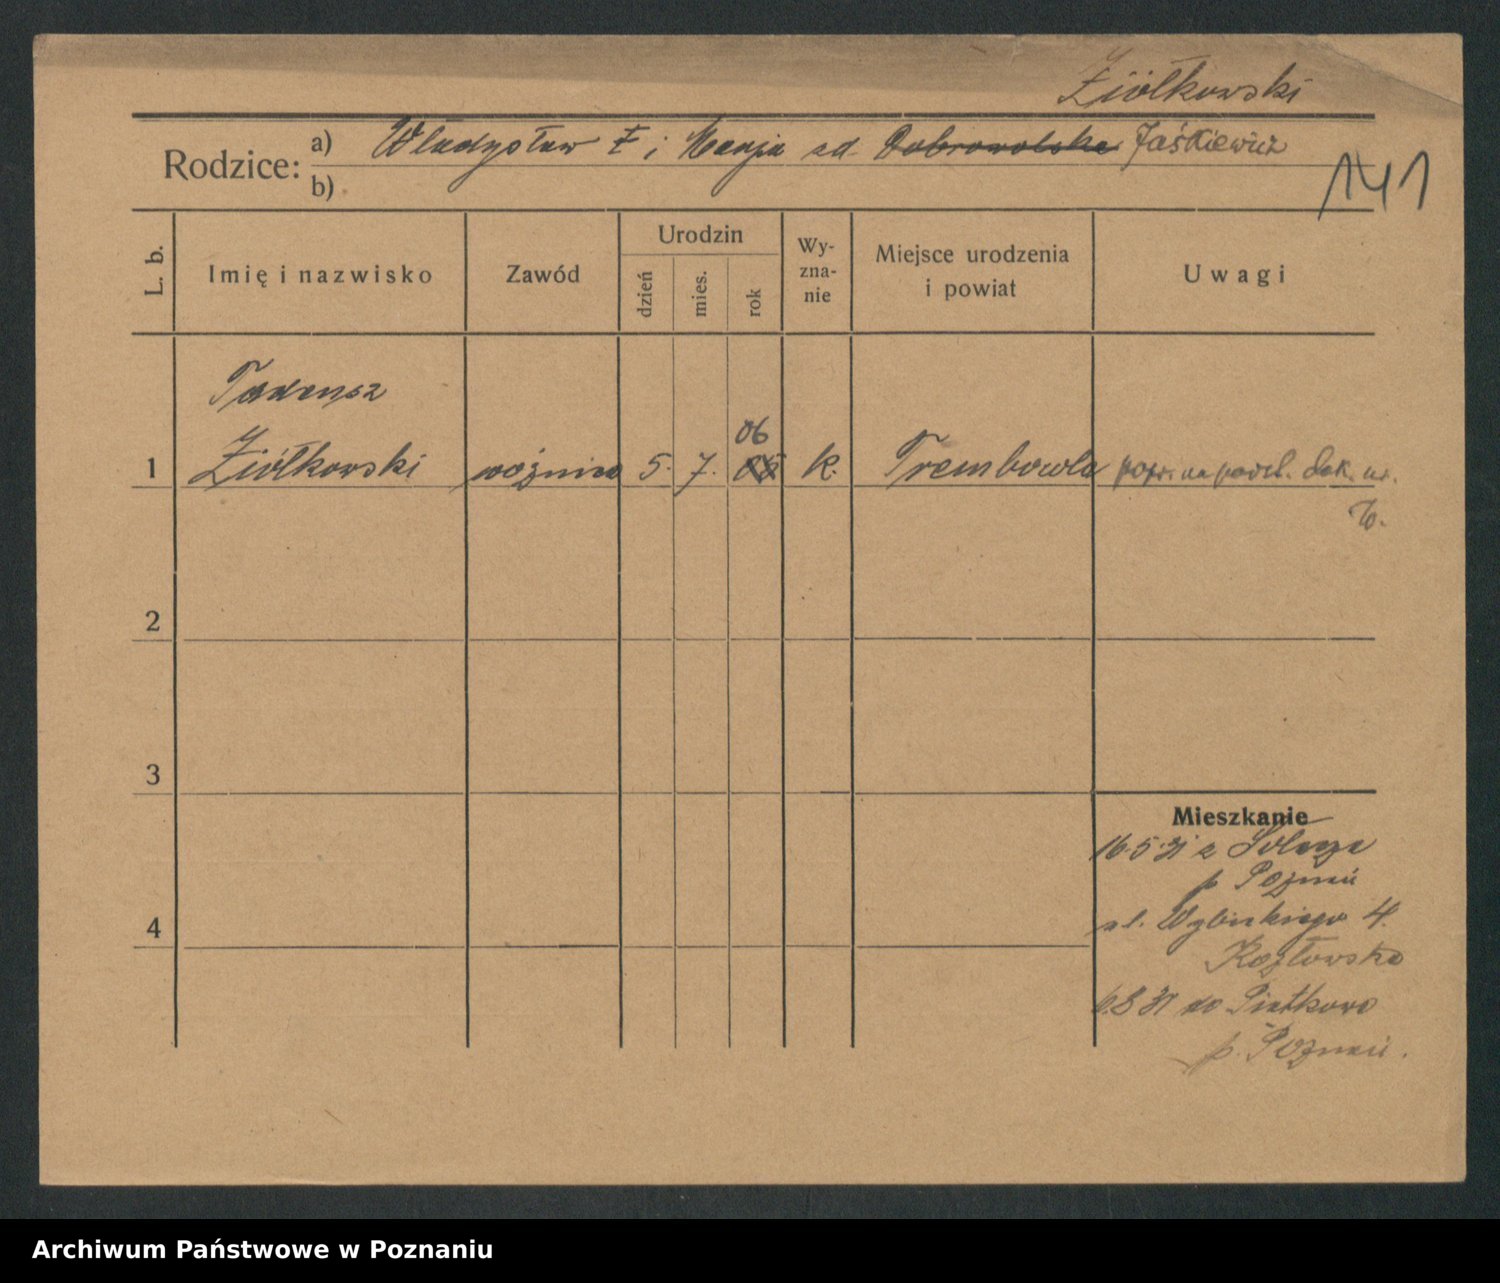 Ziółkowski
Rodzice: a) Władysław Ż i Marja zd. Dobrowolska Jaśkiewicz
b)
141
L. b. Imię i nazwisko Zawód Urodzin dzień mies. rok Wy-zna-nie Miejsce urodzenia i powiat Uwagi
Tadeusz
06
1 Ziółkowski woźnica 5. 7. k. Trembowla popr. na podst. dok. ur.
2
3
Mieszkanie
16.5.31 z
p. Poznań
4 ul. 4.
Kozłowska
6.8.31 do Piątkowo
p. Poznań.
Archiwum Państwowe w Poznaniu